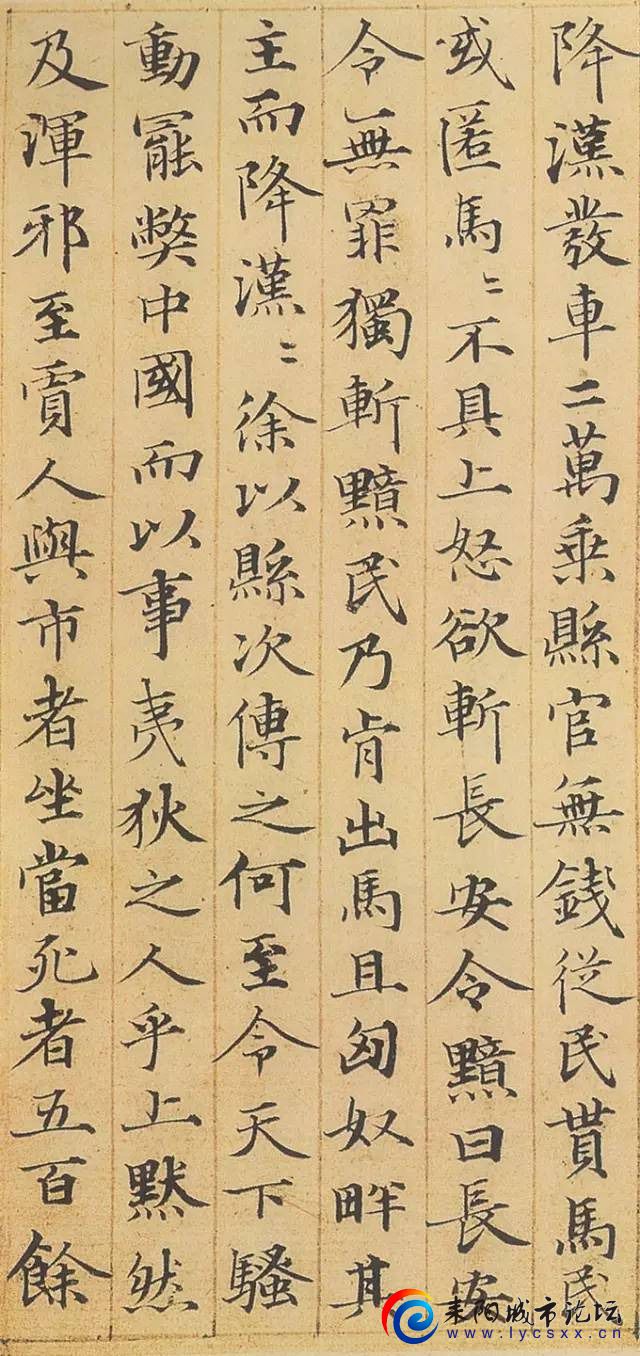 降漢發車二萬乗縣官無錢従民貰馬民
或匿馬〻不具上怒欲斬長安令黯曰長安
令無罪獨斬黯民乃肯出馬且匈奴畔其
主而降漢〻徐以縣次傳之何至令天下騷
動罷弊中國而以事夷狄之人乎上黙然
及渾邪至賈人與市者坐當死者五百餘
耒阳城市论坛
www.lycsxx.cn